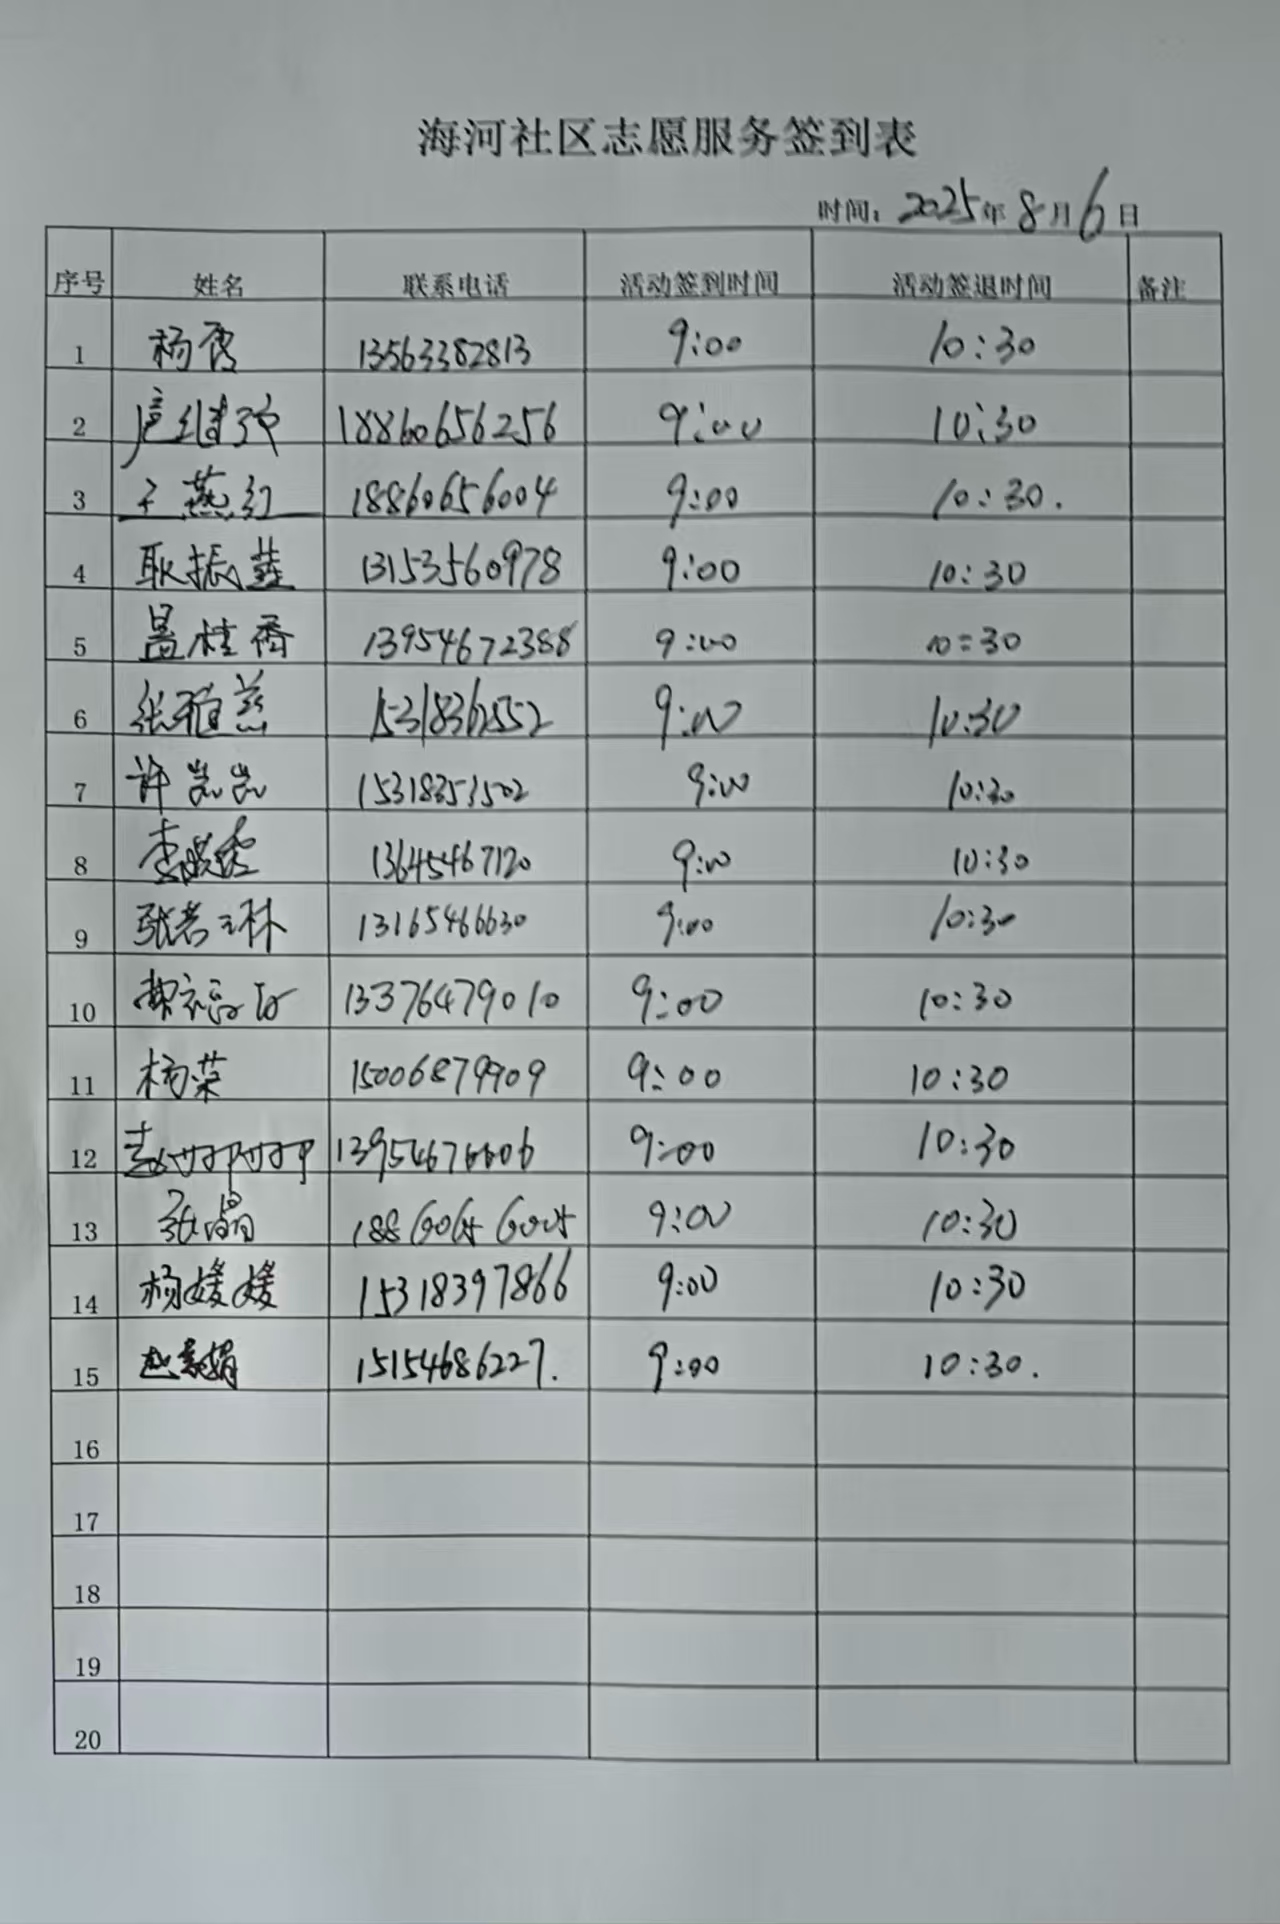 海河社区志愿服务签到表
时间：2025年8月6日
序号 姓名 联系电话 活动签到时间 活动签退时间 备注
1 杨秀 13563382813 9:00 10:30
2 18860656256 9:00 10:30
3 王燕红 18860656004 9:00 10:30.
4 耿振 13153560978 9:00 10:30
5 桂香 13954672388 9:00 10:30
6 张雅慈 15318362552 9:00 10:30
7 许岚岚 15318353502 9:00 10:30
8 李晓 13645467120 9:00 10:30
9 张若琳 13165466630 9:00 10:30
10 13376479010 9:00 10:30
11 杨荣 15006879909 9:00 10:30
12 9:00 10:30
13 张晶 9:00 10:30
14 杨媛媛 15318397866 9:00 10:30
15 赵素娟 15154686227. 9:00 10:30.
16
17
18
19
20